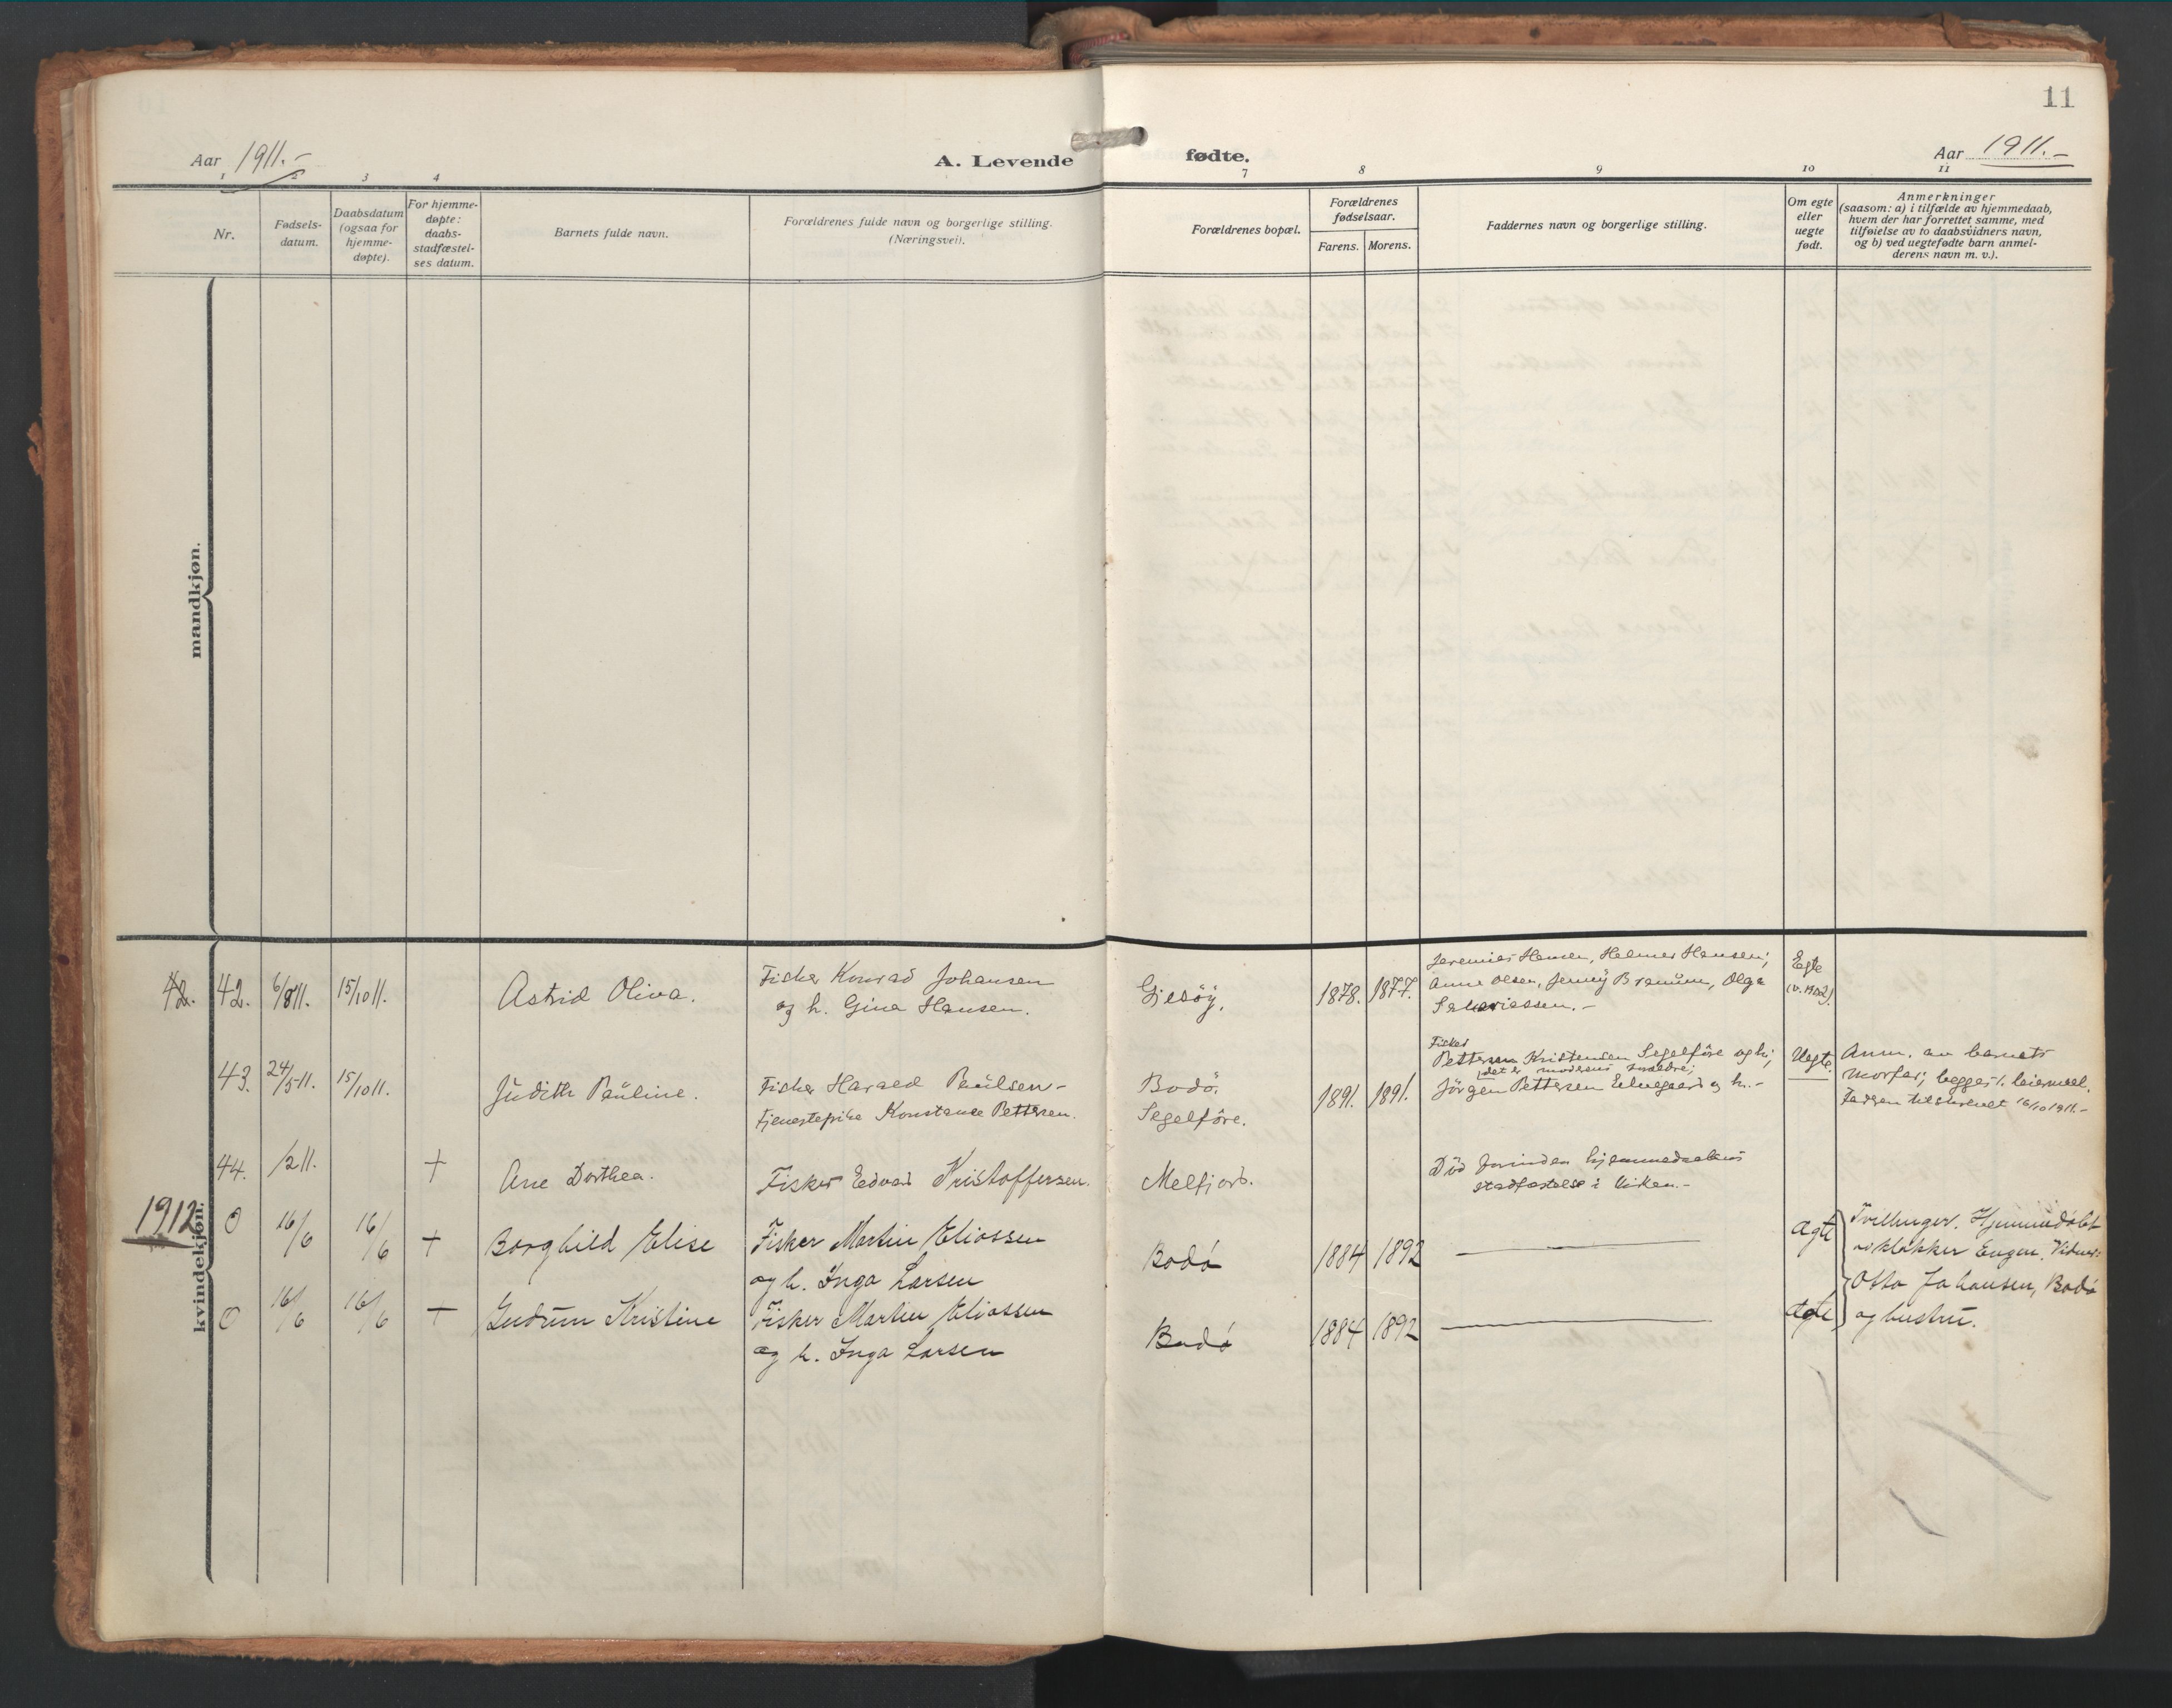 11
Aar 1911.-
A. Levende
fødte.
Aar 1911.-
1 2 3 4
7 8 9 10 11
Nr.
Fødsels-
datum.
Daabsdatum
(ogsaa for
hjemme-
døpte).
For hjemme-
døpte:
daabs-
stadfæstel-
ses datum.
Barnets fulde navn.
Forældrenes fulde navn og borgerlige stilling.
(Næringsvei).
Forældrenes bopæl.
Forældrenes
fødselsaar.
Farens. Morens.
Faddernes navn og borgerlige stilling.
Om egte
eller
uegte
født.
Anmerkninger
(saasom: a) i tilfælde av hjemmedaab,
hvem der har forrettet samme, med
tilføielse av to daabsvidners navn,
og b) ved uegtefødte barn anmel-
derens navn m. v.).
mandkjøn.
kvindekjøn.
42. 42. 6/8 11. 15/10 11. Astrid Oliva.
Fisker Konrad Johansen
og h. Gina Hansen.
Gjesöy. 1878. 1877.
Jeremias Hansen, Helmer Hansen;
Anna Olsen, Jenny Olga
Egte
43. 24/5 11. 15/10 11. Judith Pauline.
Fisker Harald Paulsen-
Tjenestepike Konstance Pettersen.
Bodö.
Segelföre.
1891. 1891.
Fisker
Kristensen Segelföre og h;
det er moderens
Jörgen Pettersen og h.-
Uegte.
Anm. av barnets
morfar; begges 1. leiermaal.
tilskrevet 16/10 1911.-
44. /2 11. + Ane Dorthea.
Fisker Edvard Kristoffersen.
Melfjord.
Död forinden hjemmedaabens
stadfæstelse i kirken.-
1912
0 16/6 16/6 + Borghild Elise
Fisker Martin Eliassen
og h. Inga Larsen
Bodø 1884 1892
ægte
Tvillinger. Hjemmedøbt
av klokker Engen. Vidner:
Otto Johansen, Bodø
og hustru.
0 16/6 16/6 + Gudrun Kristine
Fisker Martin Eliassen
og h. Inga Larsen
Bodø 1884 1892
ægte